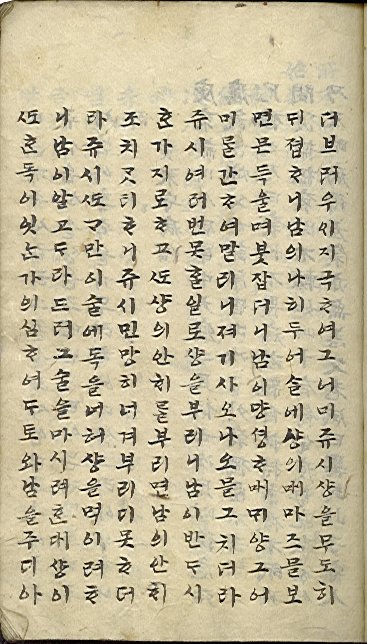 더브러수시지극ᄒᆞ여그어미쥬시샹을무도히
ᄃᆡ졉ᄒᆞ니남의나히두어술에샹의매마즈믈보
면믄득울며븟잡더니남이댱셩ᄒᆞ매ᄆᆡ양그어
미ᄅᆞᆯ간ᄒᆞ여말리니져기사오나오믈그치더라
쥬시여러번못ᄒᆞᆯ일로샹을부리니남이반ᄃᆞ시
ᄒᆞᆫ가지로ᄒᆞ고ᄯᅩ샹의안ᄒᆡᄅᆞᆯ부리면남의안ᄒᆡ
조치ᄀᆞᆺ티ᄒᆞ니쥬시민망히너겨부리디못ᄒᆞ더
라쥬시ᄯᅩᄀᆞ만이술에독을너허샹을먹이려ᄒᆞ
니남이알고ᄃᆞ라드러그술을마시려ᄒᆞᆫ대샹이
ᄯᅩᄒᆞᆫ독이잇ᄂᆞᆫ가의심ᄒᆞ여ᄃᆞ토와남을주디아